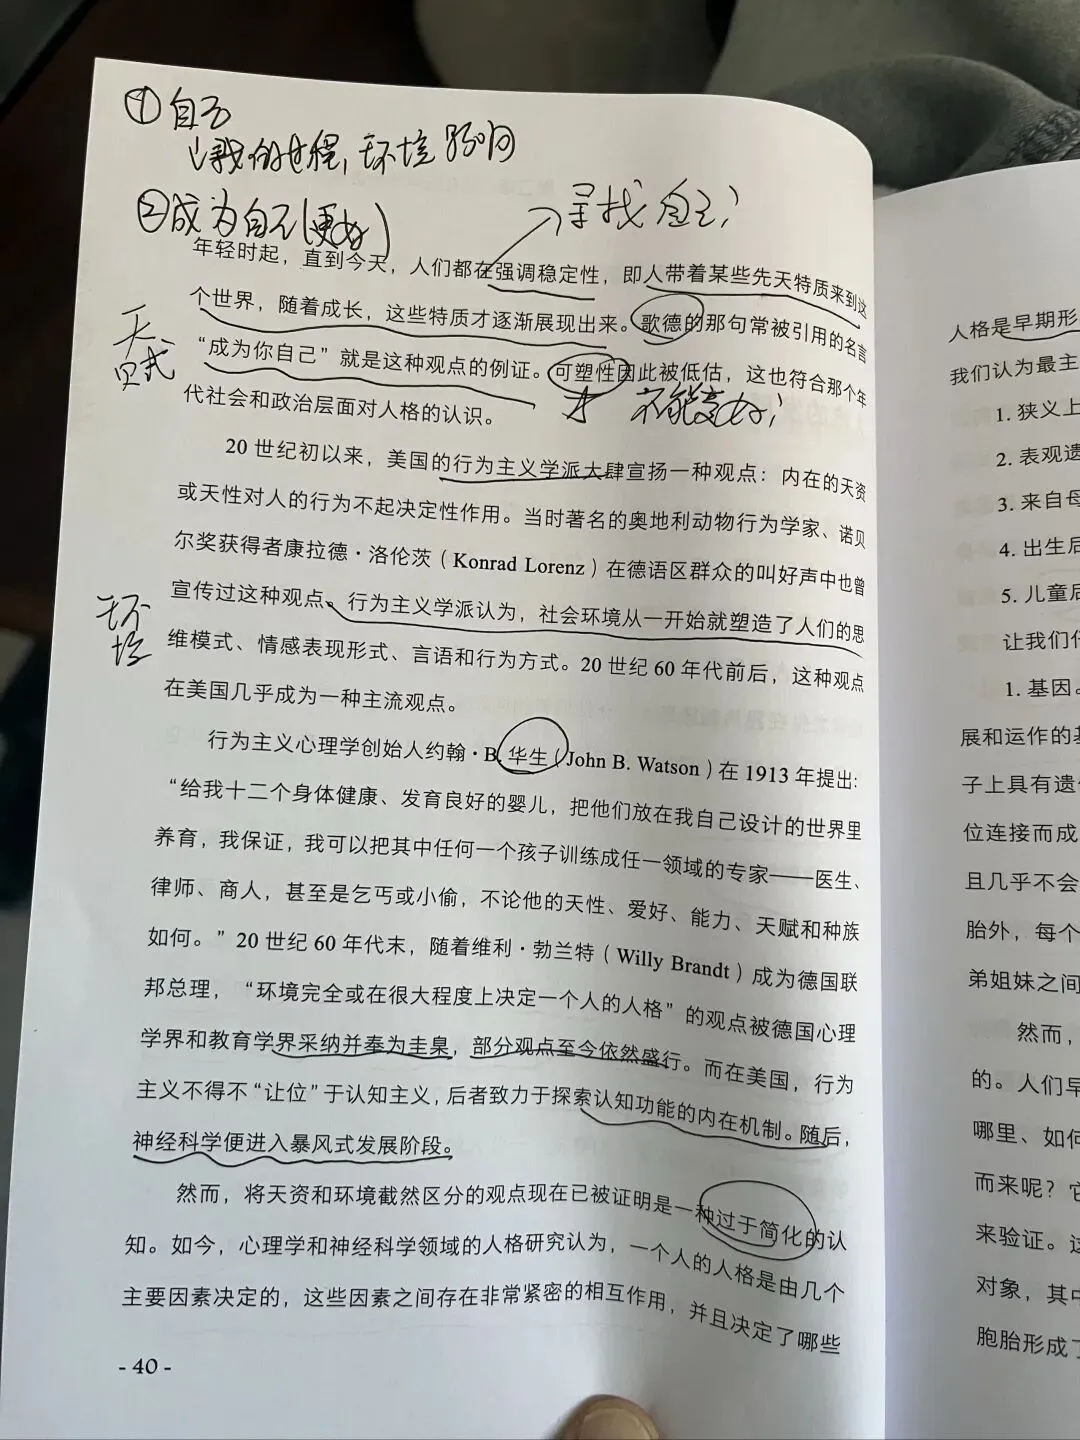 ① 自己
的过程，环境
②成为自己(更好)
寻找自己
年轻时起，直到今天，人们都在强调稳定性，即人带着某些先天特质来到这
个世界，随着成长，这些特质才逐渐展现出来。歌德的那句常被引用的名言
“成为你自己”就是这种观点的例证。可塑性因此被低估，这也符合那个年
代社会和政治层面对人格的认识。
天赋
不能变好
20 世纪初以来，美国的行为主义学派大肆宣扬一种观点：内在的天资
或天性对人的行为不起决定性作用。当时著名的奥地利动物行为学家、诺贝
尔奖获得者康拉德·洛伦茨（Konrad Lorenz）在德语区群众的叫好声中也曾
宣传过这种观点。行为主义学派认为，社会环境从一开始就塑造了人们的思
维模式、情感表现形式、言语和行为方式。20 世纪 60 年代前后，这种观点
在美国几乎成为一种主流观点。
环境
行为主义心理学创始人约翰·B. 华生（John B. Watson）在 1913 年提出：
“给我十二个身体健康、发育良好的婴儿，把他们放在我自己设计的世界里
养育，我保证，我可以把其中任何一个孩子训练成任一领域的专家——医生、
律师、商人，甚至是乞丐或小偷，不论他的天性、爱好、能力、天赋和种族
如何。”20 世纪 60 年代末，随着维利·勃兰特（Willy Brandt）成为德国联
邦总理，“环境完全或在很大程度上决定一个人的人格”的观点被德国心理
学界和教育学界采纳并奉为圭臬，部分观点至今依然盛行。而在美国，行为
主义不得不“让位”于认知主义，后者致力于探索认知功能的内在机制。随后，
神经科学便进入暴风式发展阶段。
然而，将天资和环境截然区分的观点现在已被证明是一种过于简化的认
知。如今，心理学和神经科学领域的人格研究认为，一个人的人格是由几个
主要因素决定的，这些因素之间存在非常紧密的相互作用，并且决定了哪些
- 40 -
人格是早期形
我们认为最主
1. 狭义上
2. 表观遗
3. 来自母
4. 出生后
5. 儿童后
让我们仔
1. 基因。
展和运作的基
子上具有遗传
位连接而成
且几乎不会
胎外，每个
弟姐妹之间
然而，
的。人们早
哪里、如何
而来呢？它
来验证。这
对象，其中
胞胎形成了